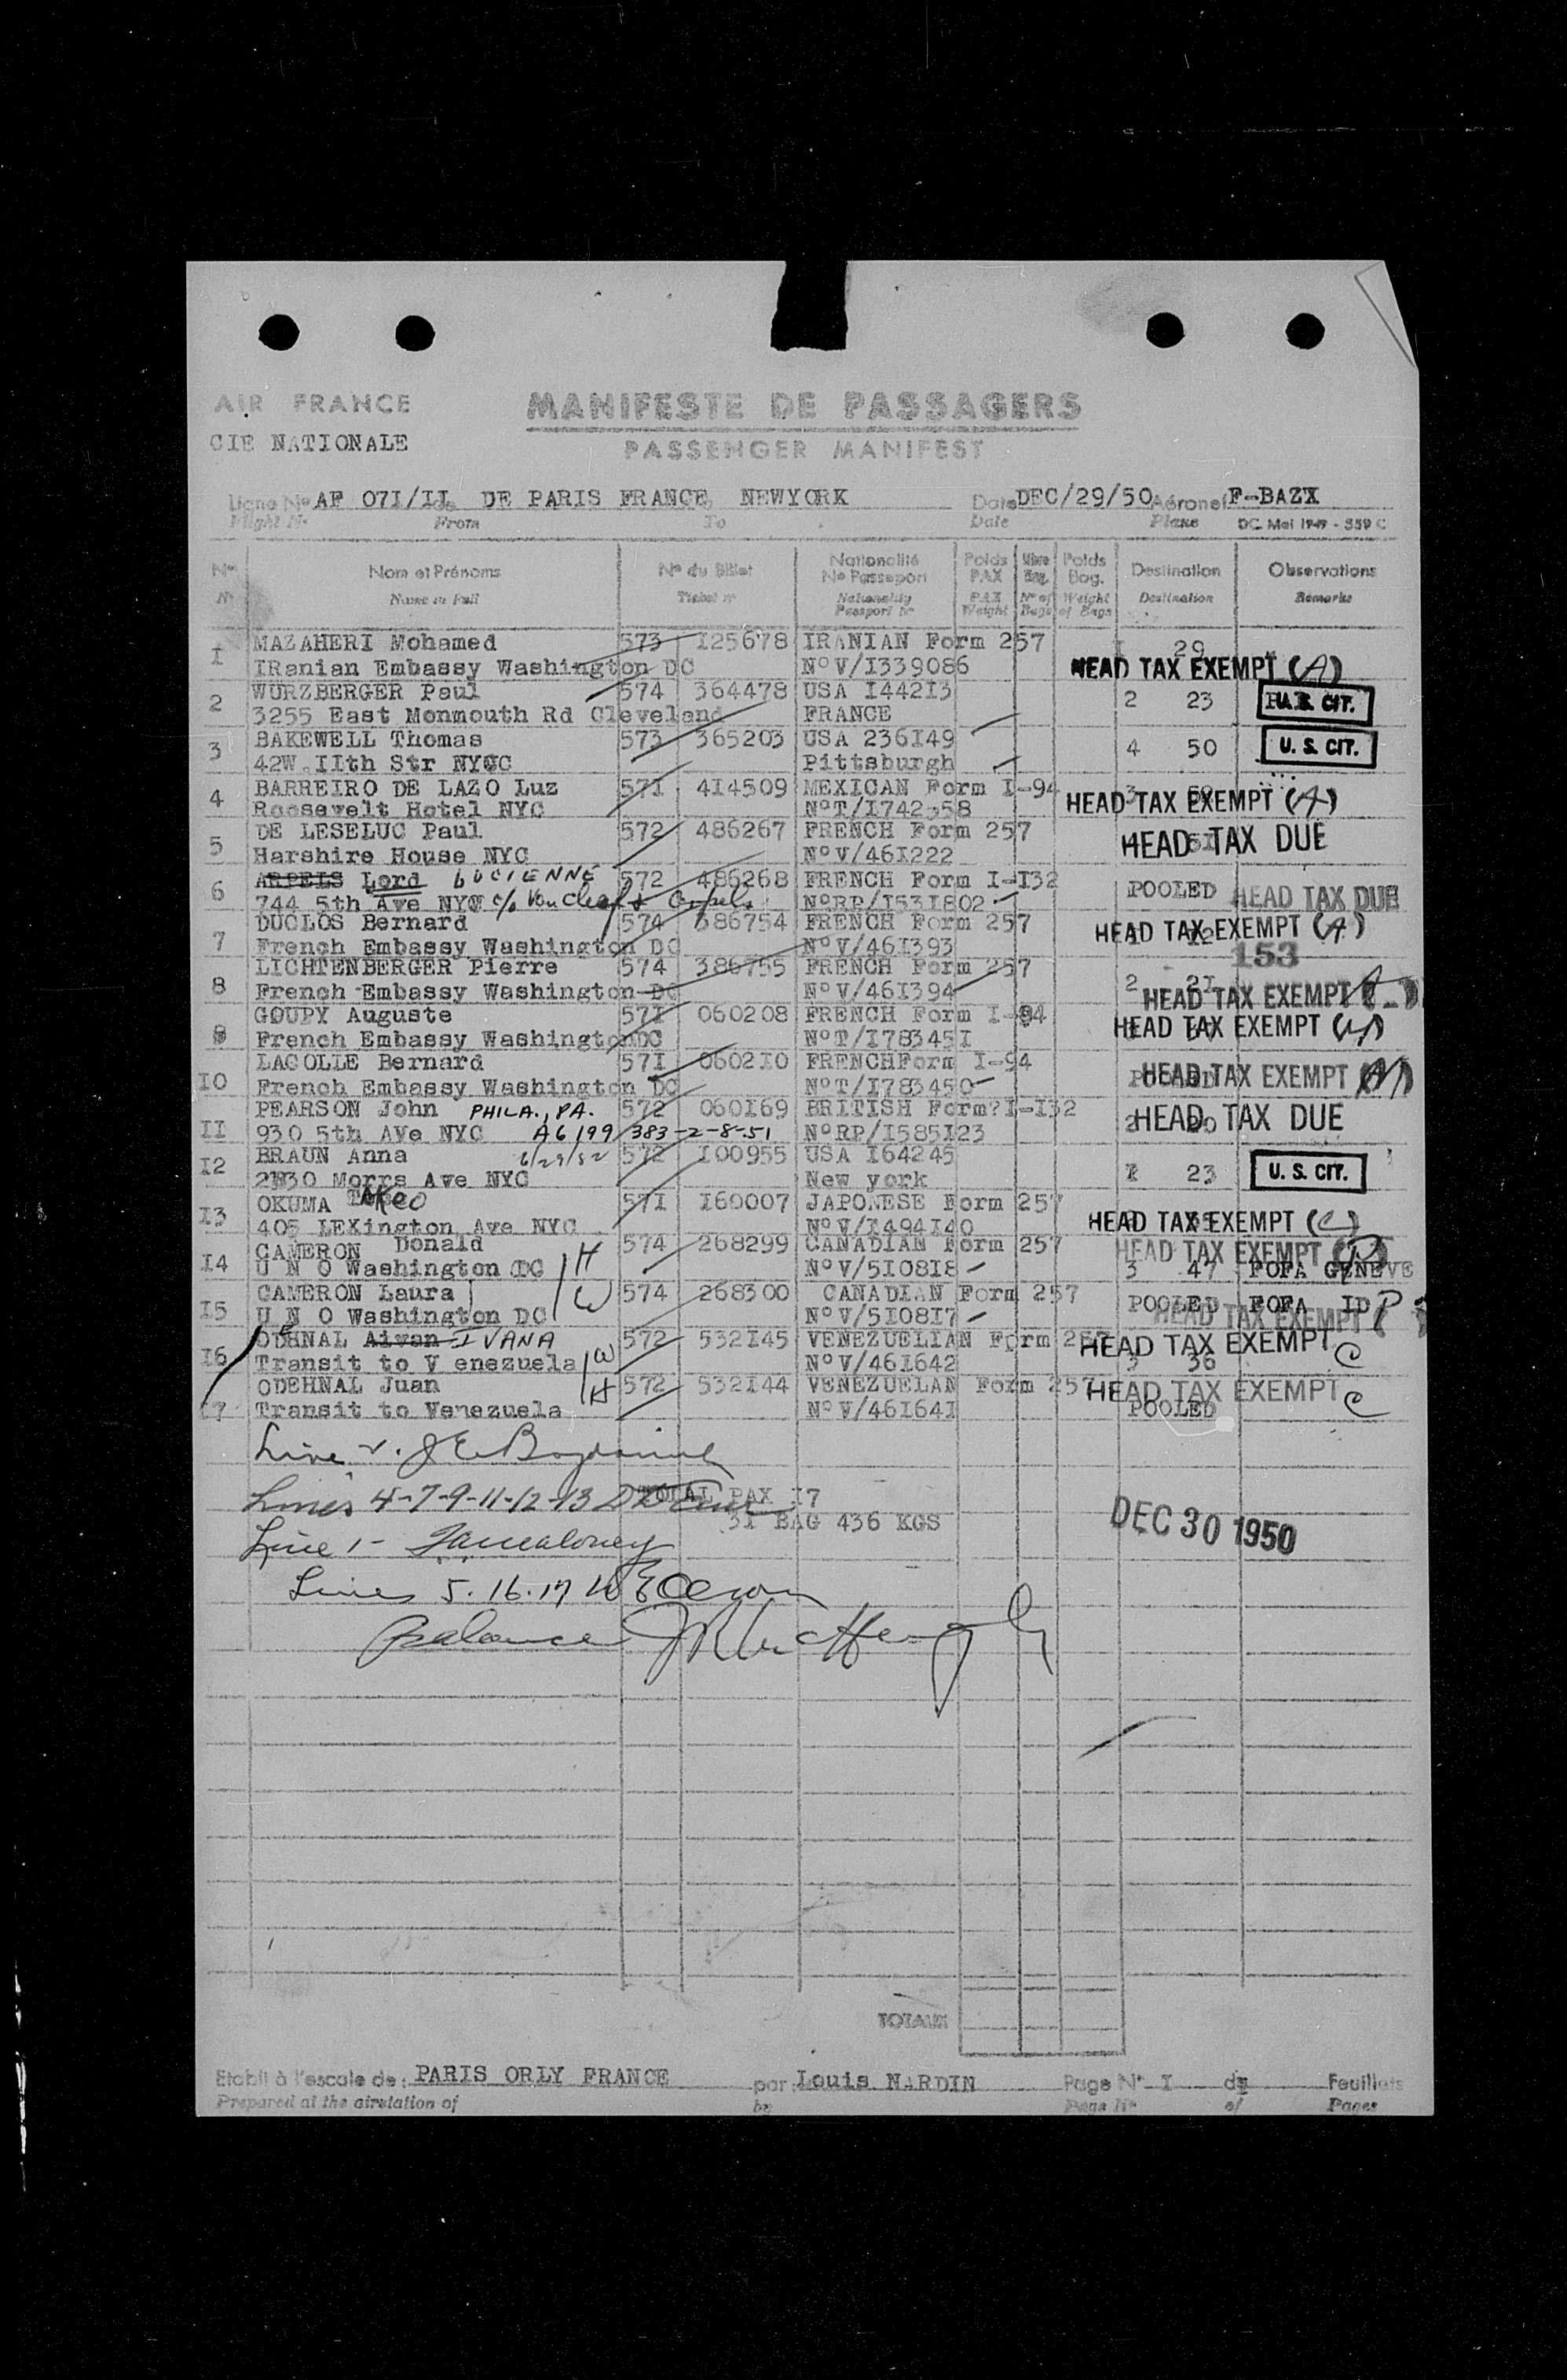 AIR FRANCE MANIFESTE DE PASSAGERS
CIE NATIONALE PASSENGER MANIFEST
Ligne No AF 07I/II de DE PARIS FRANCE NEWYORK Date DEC/29/50 Aéronef F-BAZX
Flight No From To Date Plane DC Mai 1949 - 559 C
No Nom et Prénoms No du Billet Nationalité No Passeport Poids PAX Nbre Bag. Poids Bag. Destination Observations
No Name in Full Ticket no Nationality Passport No PAX Weight No of Bags Weight of Bags Destination Remarks
I MAZAHERI Mohamed 573 I25678 IRANIAN Form 257 I 29
IRanian Embassy Washington DC No V/I339086 HEAD TAX EXEMPT (A)
2 WURZBERGER Paul 574 364478 USA I442I3 2 23 U.S. CIT.
3255 East Monmouth Rd Cleveland FRANCE
3 BAKEWELL Thomas 573 365203 USA 236I49 4 50 U. S. CIT.
42W.IIth Str NYC Pittsburgh
4 BARREIRO DE LAZO Luz 57I 414509 MEXICAN Form I-94 3 HEAD TAX EXEMPT (A)
Roosewelt Hotel NYC No T/I742358
5 DE LESELUC Paul 572 486267 FRENCH Form 257 HEAD TAX DUE
Harshire House NYC No V/46I222
6 ARPELS Lord LUCIENNE 572 486268 FRENCH Form I-I32 POOLED HEAD TAX DUE
744 5th Ave NYC c/o Van Cleef & Arpels No RP/I53I802
7 DUCLOS Bernard 574 386754 FRENCH Form 257 HEAD TAX EXEMPT (A)
French Embassy Washington DC No V/46I393 153
8 LICHTENBERGER Pierre 574 386755 FRENCH Form 257 2 2I
French Embassy Washington DC No V/46I394 HEAD TAX EXEMPT
9 GOUPY Auguste 57I 060208 FRENCH Form I-94 HEAD TAX EXEMPT
French Embassy Washington DC No T/I78345I
LAGOLLE Bernard 57I 0602I0 FRENCHForm I-94 POOLED HEAD TAX EXEMPT (A)
I0 French Embassy Washington DC No T/I783450
PEARSON John PHILA., PA. 572 060I69 BRITISH Form?I-I32 2 HEAD TAX DUE
II 930 5th AVe NYC A6 199 383-2-8-51 No RP/I585I23
I2 BRAUN Anna 6/29/52 572 I00955 USA I64245 I 23 U. S. CIT.
2830 Morrs Ave NYC New york
I3 OKUMA TAKeO 57I I60007 JAPONESE Form 257 HEAD TAX EXEMPT (C)
405 LEXington Ave NYC No V/I494I40
I4 CAMERON Donald H 574 268299 CANADIAN Form 257 HEAD TAX EXEMPT
U N O Washington DC No V/5I08I8 3 47 FOFA GENEVE
CAMERON Laura W 574 268300 CANADIAN Form 257 POOLED FOFA ID P
I5 U N O Washington DC No V/5I08I7 HEAD TAX EXEMPT
ODEHNAL Aivan IVANA W 572 532I45 VENEZUELIAN Form 257 HEAD TAX EXEMPT C
I6 Transit to V enezuela No V/46I642 3 36
ODEHNAL Juan H 572 532I44 VENEZUELAN Form 257 HEAD TAX EXEMPT C
I7 Transit to Venezuela No V/46I64I POOLED
Line 2.
Lines 4-7-9-11-12-13 TOTAL PAX I7
3I BAG 436 KGS DEC 30 1950
Line 1-
Lines 5.16.17
Balance
TOTAUX
Etabli à l'escale de: PARIS ORLY FRANCE par Louis NARDIN Page No I de Feuillets
Prepared at the airstation of by Page No of Pages